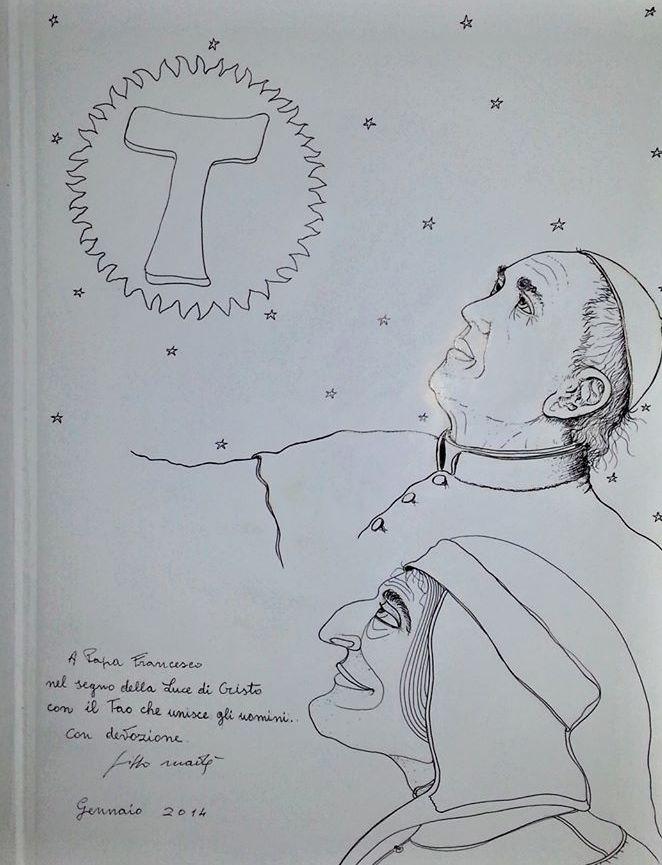 A Papa Francesco
nel segno della Luce di Cristo
con il Tao che unisce gli uomini..
con devozione
Gennaio 2014